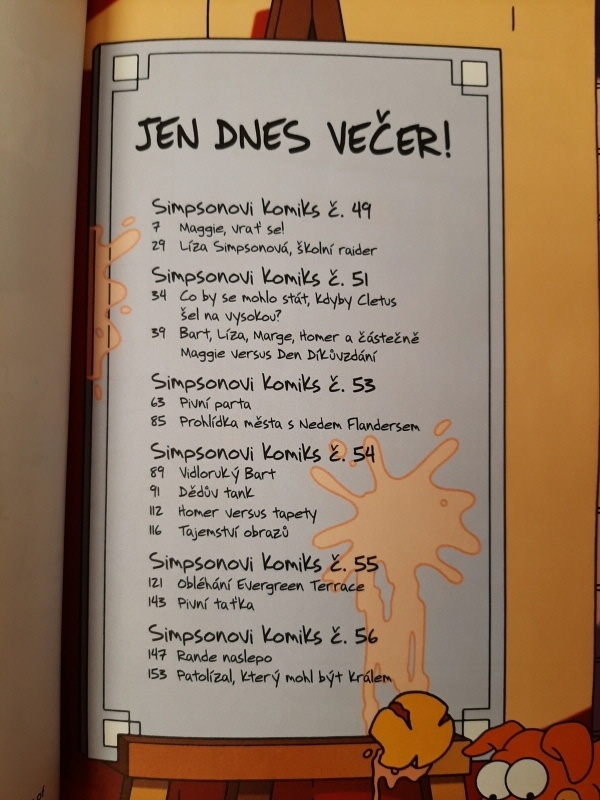 JEN DNES VEČER!
Simpsonovi Komiks č. 49
7 Maggie, vrať se!
29 Líza Simpsonová, školní raider
Simpsonovi Komiks č. 51
34 Co by se mohlo stát, kdyby Cletus
šel na vysokou?
39 Bart, Líza, Marge, Homer a částečně
Maggie versus Den Díkůvzdání
Simpsonovi Komiks č. 53
63 Pivní parta
85 Prohlídka města s Nedem Flandersem
Simpsonovi Komiks č. 54
89 Vidloruký Bart
91 Dědův tank
112 Homer versus tapety
116 Tajemství obrazů
Simpsonovi Komiks č. 55
121 Obléhání Evergreen Terrace
143 Pivní taťka
Simpsonovi Komiks č. 56
147 Rande naslepo
153 Patolízal, který mohl být králem
of